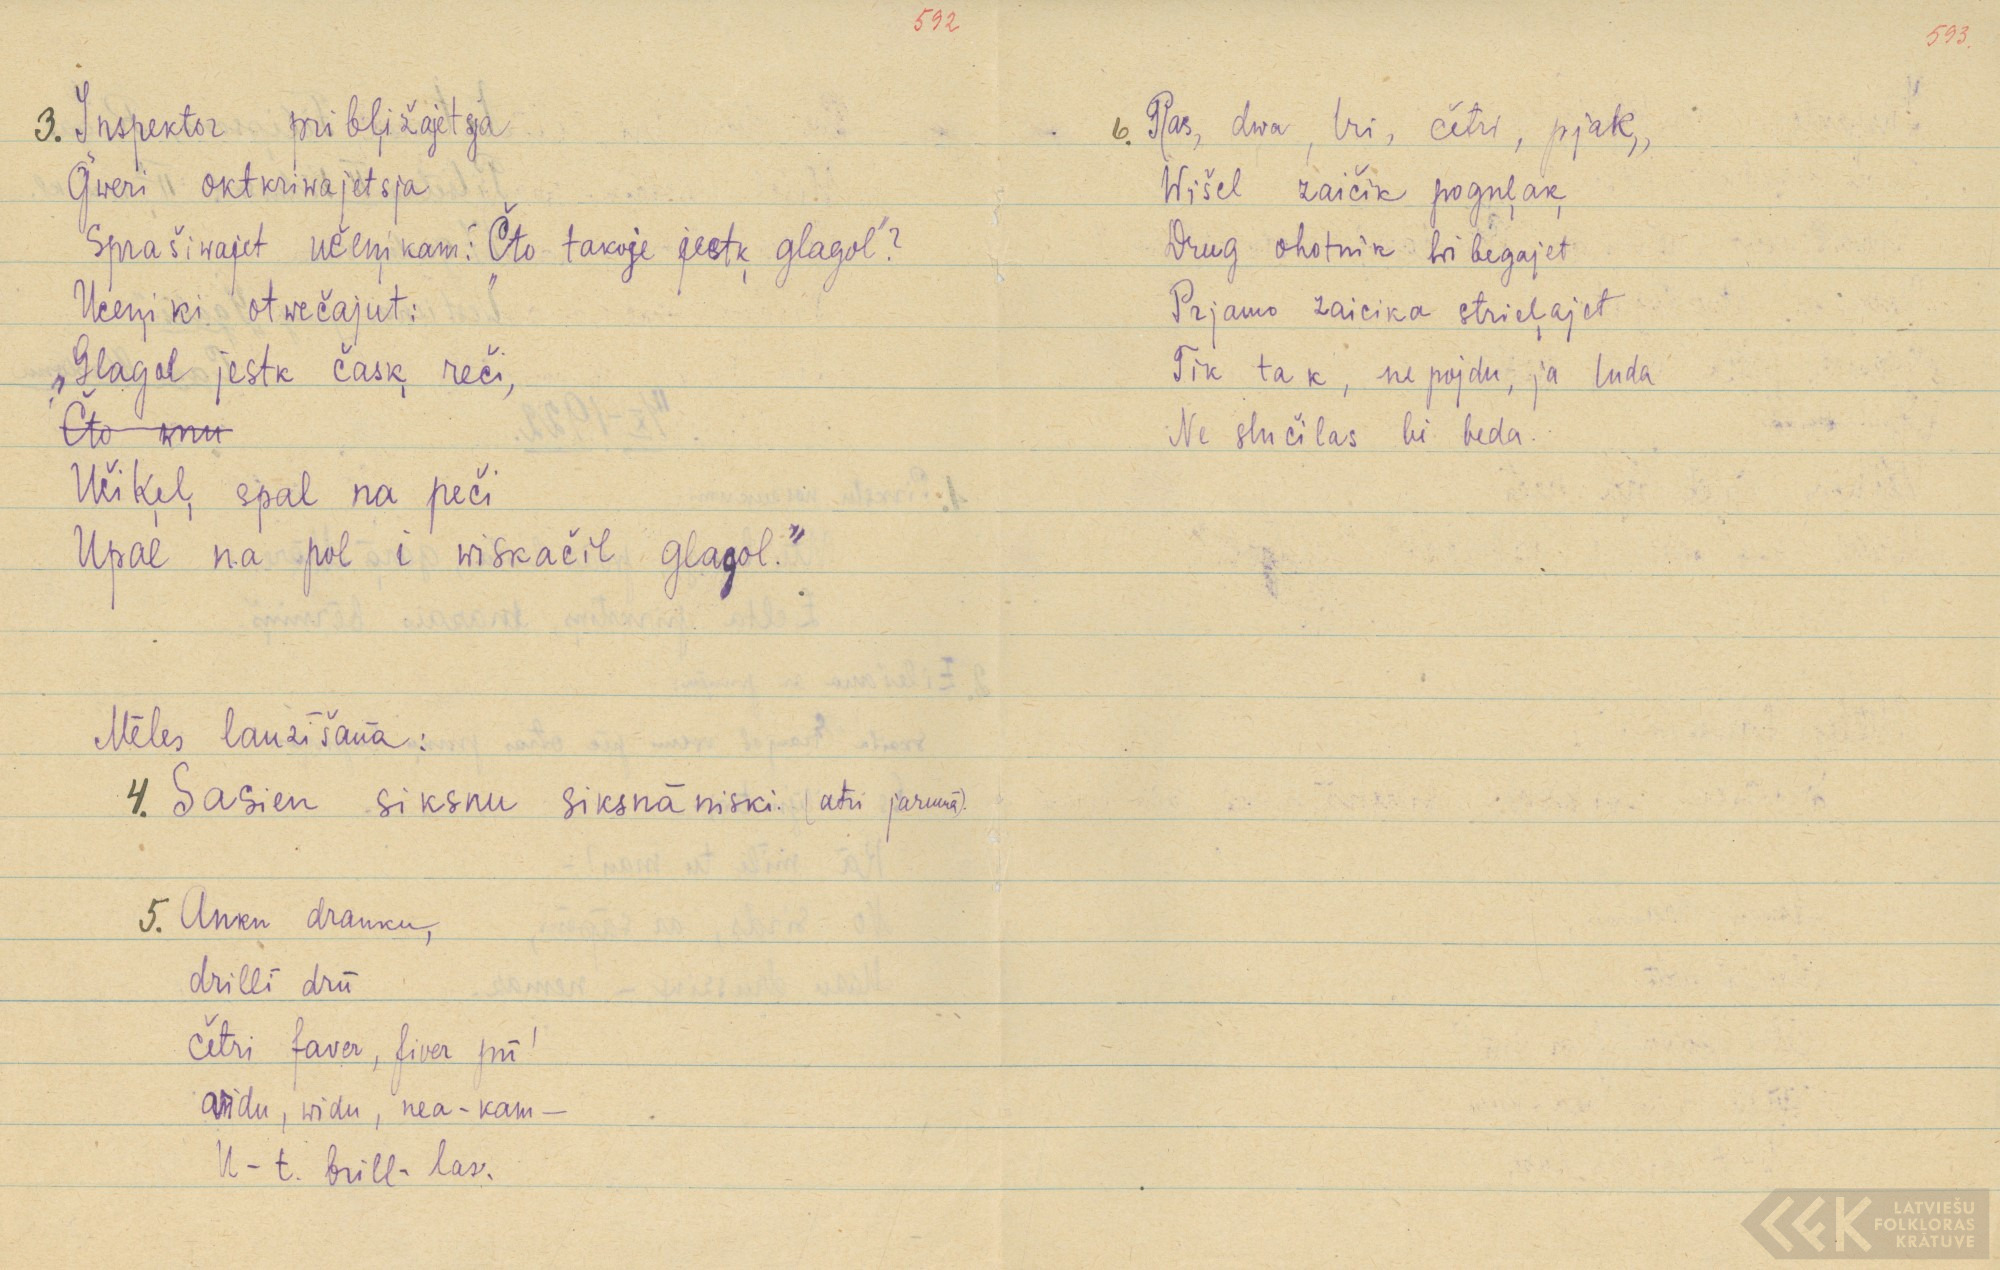 592
3. Inspektor pribļižajetsja
Ģweri oktkriwajetsja
Sprašiwajet učeņikam: "Čto takoje jestķ glagol"?
Uceņiki otwečajut:
"Glagol jestk časķ reči,
Čto wnu
Učiķeļ spal na peči
Upal na pol i wiskačil glagol."
Mēles lauzīšana:
4. Sasien siksnu siksnāniski. (ātri jārunā).
5. Anku dranku,
drillī drū
četri faver, fiver pū!
widu, widu, nea-kam—
U-t. brill- lax.
593.
6. Ras, dwa, tri, četri, pjaķ,
Wišel zaičik poguļaķ
Drug ohotnik wibegajet
Prjamo zaicika strieļajet
Tik tak, ne pojdu, ja tuda
Ne slučilas bi beda.
LATVIEŠU
FOLKLORAS
KRĀTUVE